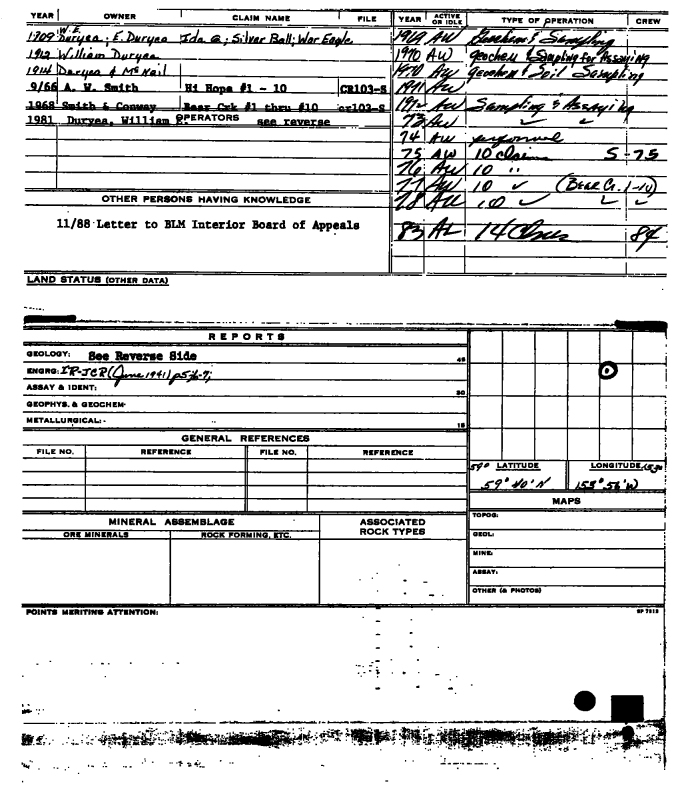 YEAR OWNER CLAIM NAME FILE YEAR ACTIVE OR IDLE TYPE OF OPERATION CREW
1909 W.E. Duryea; E. Duryea Ida a; Silver Ball; War Eagle
1912 William Duryea
1914 Duryea & McNeil
9/66 A. W. Smith Hi Hope #1 - 10 CR103-S
1968 Smith & Conway Bear Crk #1 thru #10 cr103-S
1981 Duryea, William R. OPERATORS see reverse
1969 AW Geochem & Sampling
1970 AW geochem & Sampling for Assaying
1970 AW geochem & Soil Sampling
1971 AW
1972 AW Sampling & Assaying
73 AW
74 AW personnel
75 AW 10 claims S-75
76 AW 10 "
77 AW 10 ✓ (Bear Cr. 1-10)
78 AW 10 ✓
83 AL 14 84
OTHER PERSONS HAVING KNOWLEDGE
11/88 Letter to BLM Interior Board of Appeals
LAND STATUS (OTHER DATA)
REPORTS
GEOLOGY: See Reverse Side 45
ENGRG: IR-JCR (June 1941) p5,6-7;
ASSAY & IDENT: 30
GEOPHYS. & GEOCHEM-
METALLURGICAL:- 15
GENERAL REFERENCES
FILE NO. REFERENCE FILE NO. REFERENCE
59° LATITUDE LONGITUDE
59° 40' N 153° 56' W
MAPS
TOPOG:
GEOL:
MINE:
ASSAY:
OTHER (& PHOTOS)
MINERAL ASSEMBLAGE ASSOCIATED ROCK TYPES
ORE MINERALS ROCK FORMING, ETC.
POINTS MERITING ATTENTION: